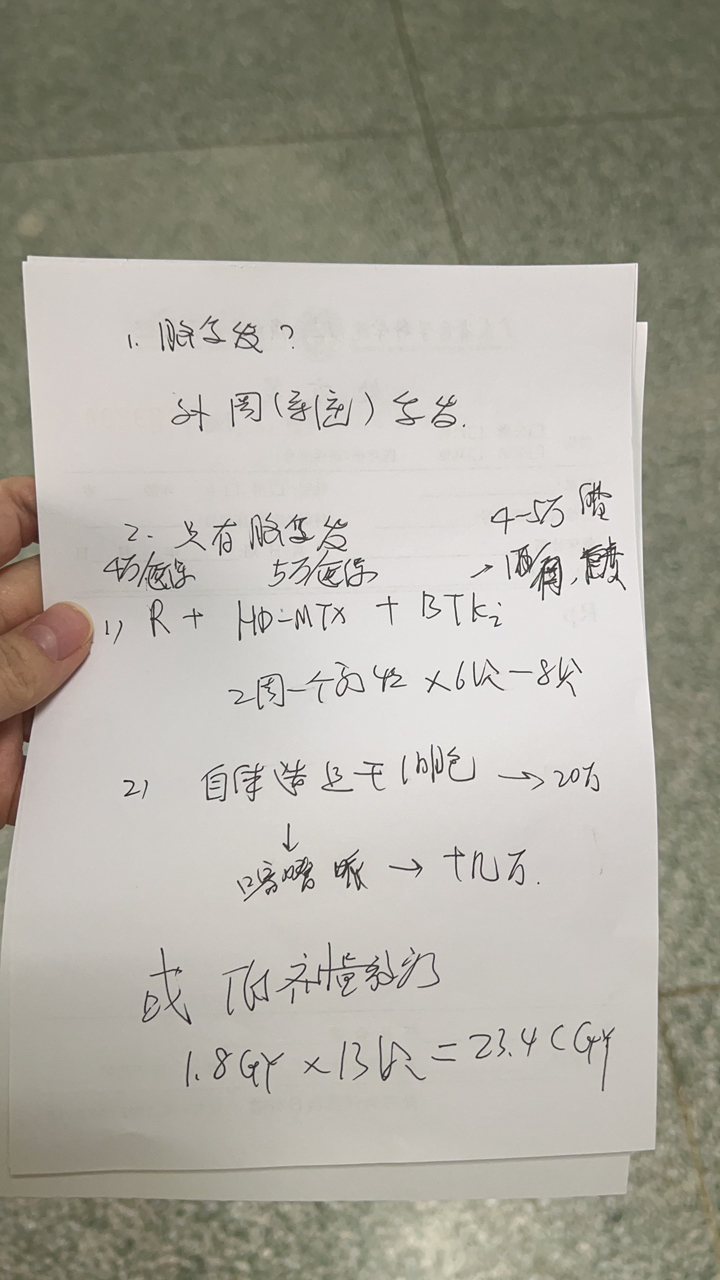 1. 脑复发?
外周(睾丸)复发.
2. 只有脑复发
4-5万
4万医保 5万医保 →
1) R + HD-MTX + BTKi
2周一个疗程 ×6次-8次
2) 自体造血干细胞 → 20万
↓
塞替哌 → 十几万.
或 低剂量放疗
1.8Gy ×13次 = 23.4CGy